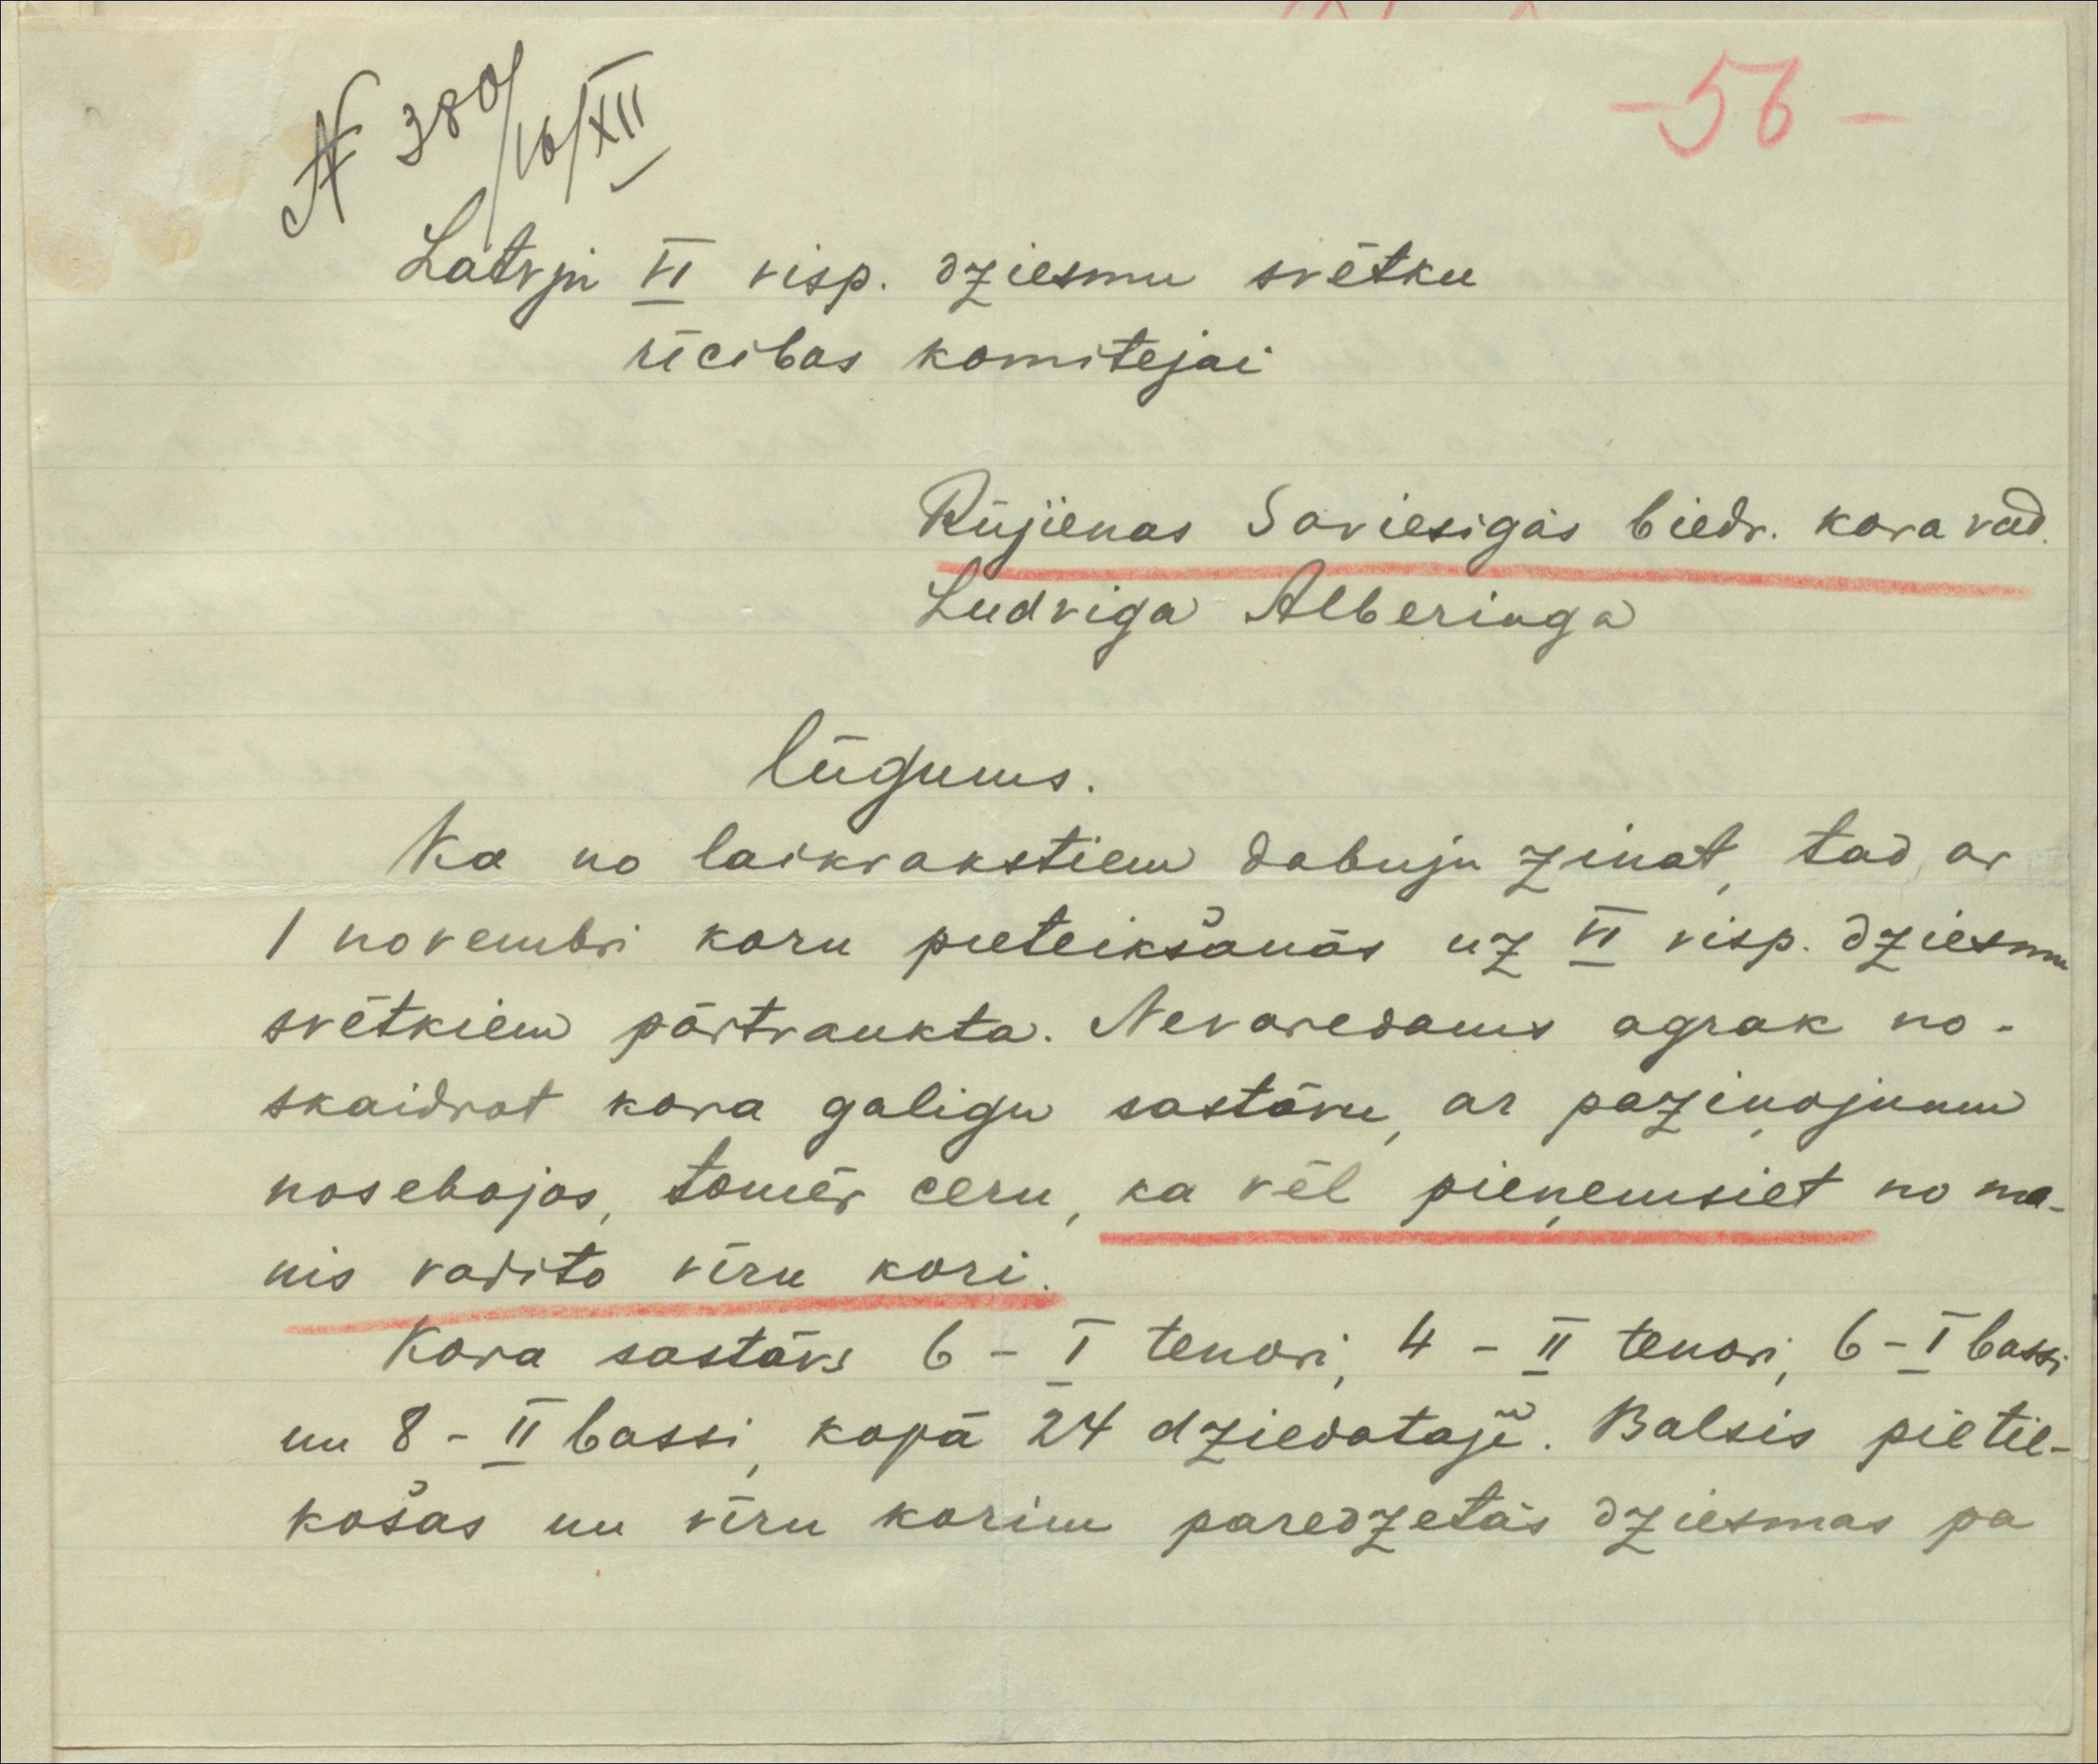 № 380/16/XII
-56-
Latvju VI visp. dziesmu svētku
rīcības komitejai
Rūjienas Saviesīgās biedr. kora vad.
Ludviga Alberinga
lūgums.
Ka no laikrakstiem dabuju zinat, tad ar
1 novembri koru pieteikšanās uz VI visp. dziesmu
svētkiem pārtraukta. Nevaredams agrak no-
skaidrot kora galigu sastāvu, ar paziņojumu
nosebojos, tomēr ceru, ka vēl pieņemsiet no ma-
nis vadito vīru kori.
Kora sastāvs 6 - I tenori, 4 - II tenori, 6 - I bassi
un 8 - II bassi, kopā 24 dziedataji. Balsis pietie-
košas un vīru korim paredzetās dziesmas pa